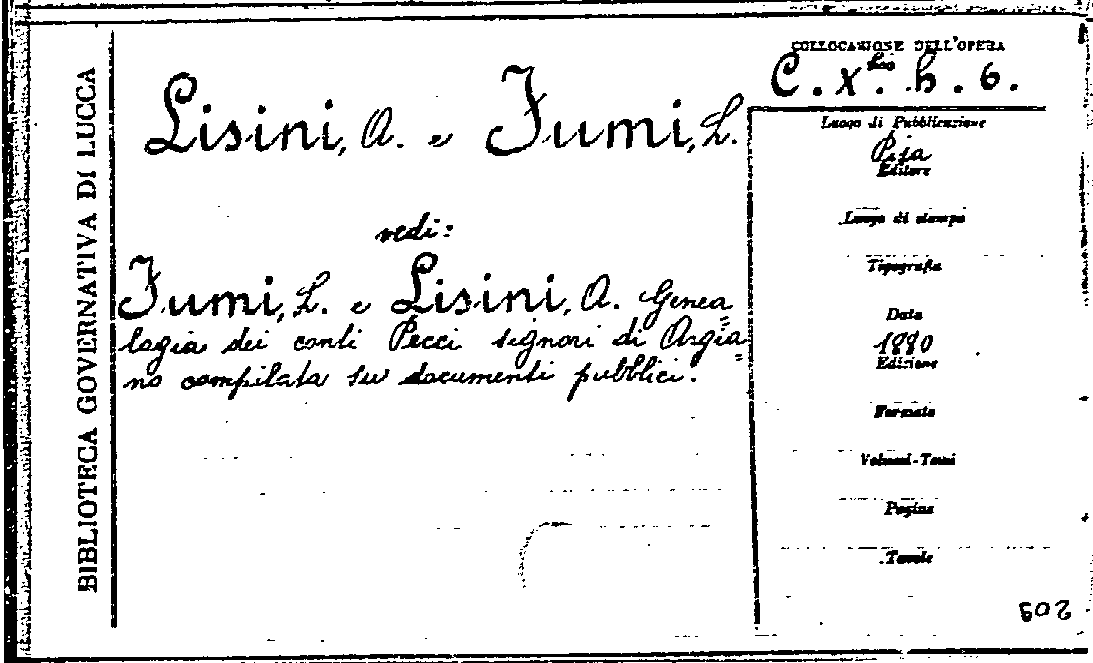 BIBLIOTECA GOVERNATIVA DI LUCCA
Lisini, A. e Fumi, L.
vedi:
Fumi, L. e Lisini, A. Genea=
logia dei conti Pecci signori di Argia=
no compilata su documenti pubblici.
COLLOCAZIONE DELL'OPERA
C. X. bis h. 6.
Luogo di Pubblicazione
Pisa
Editore
Luogo di stampa
Tipografia
Data
1880
Edizione
Formato
Volumi-Tomi
Pagine
Tavole
209